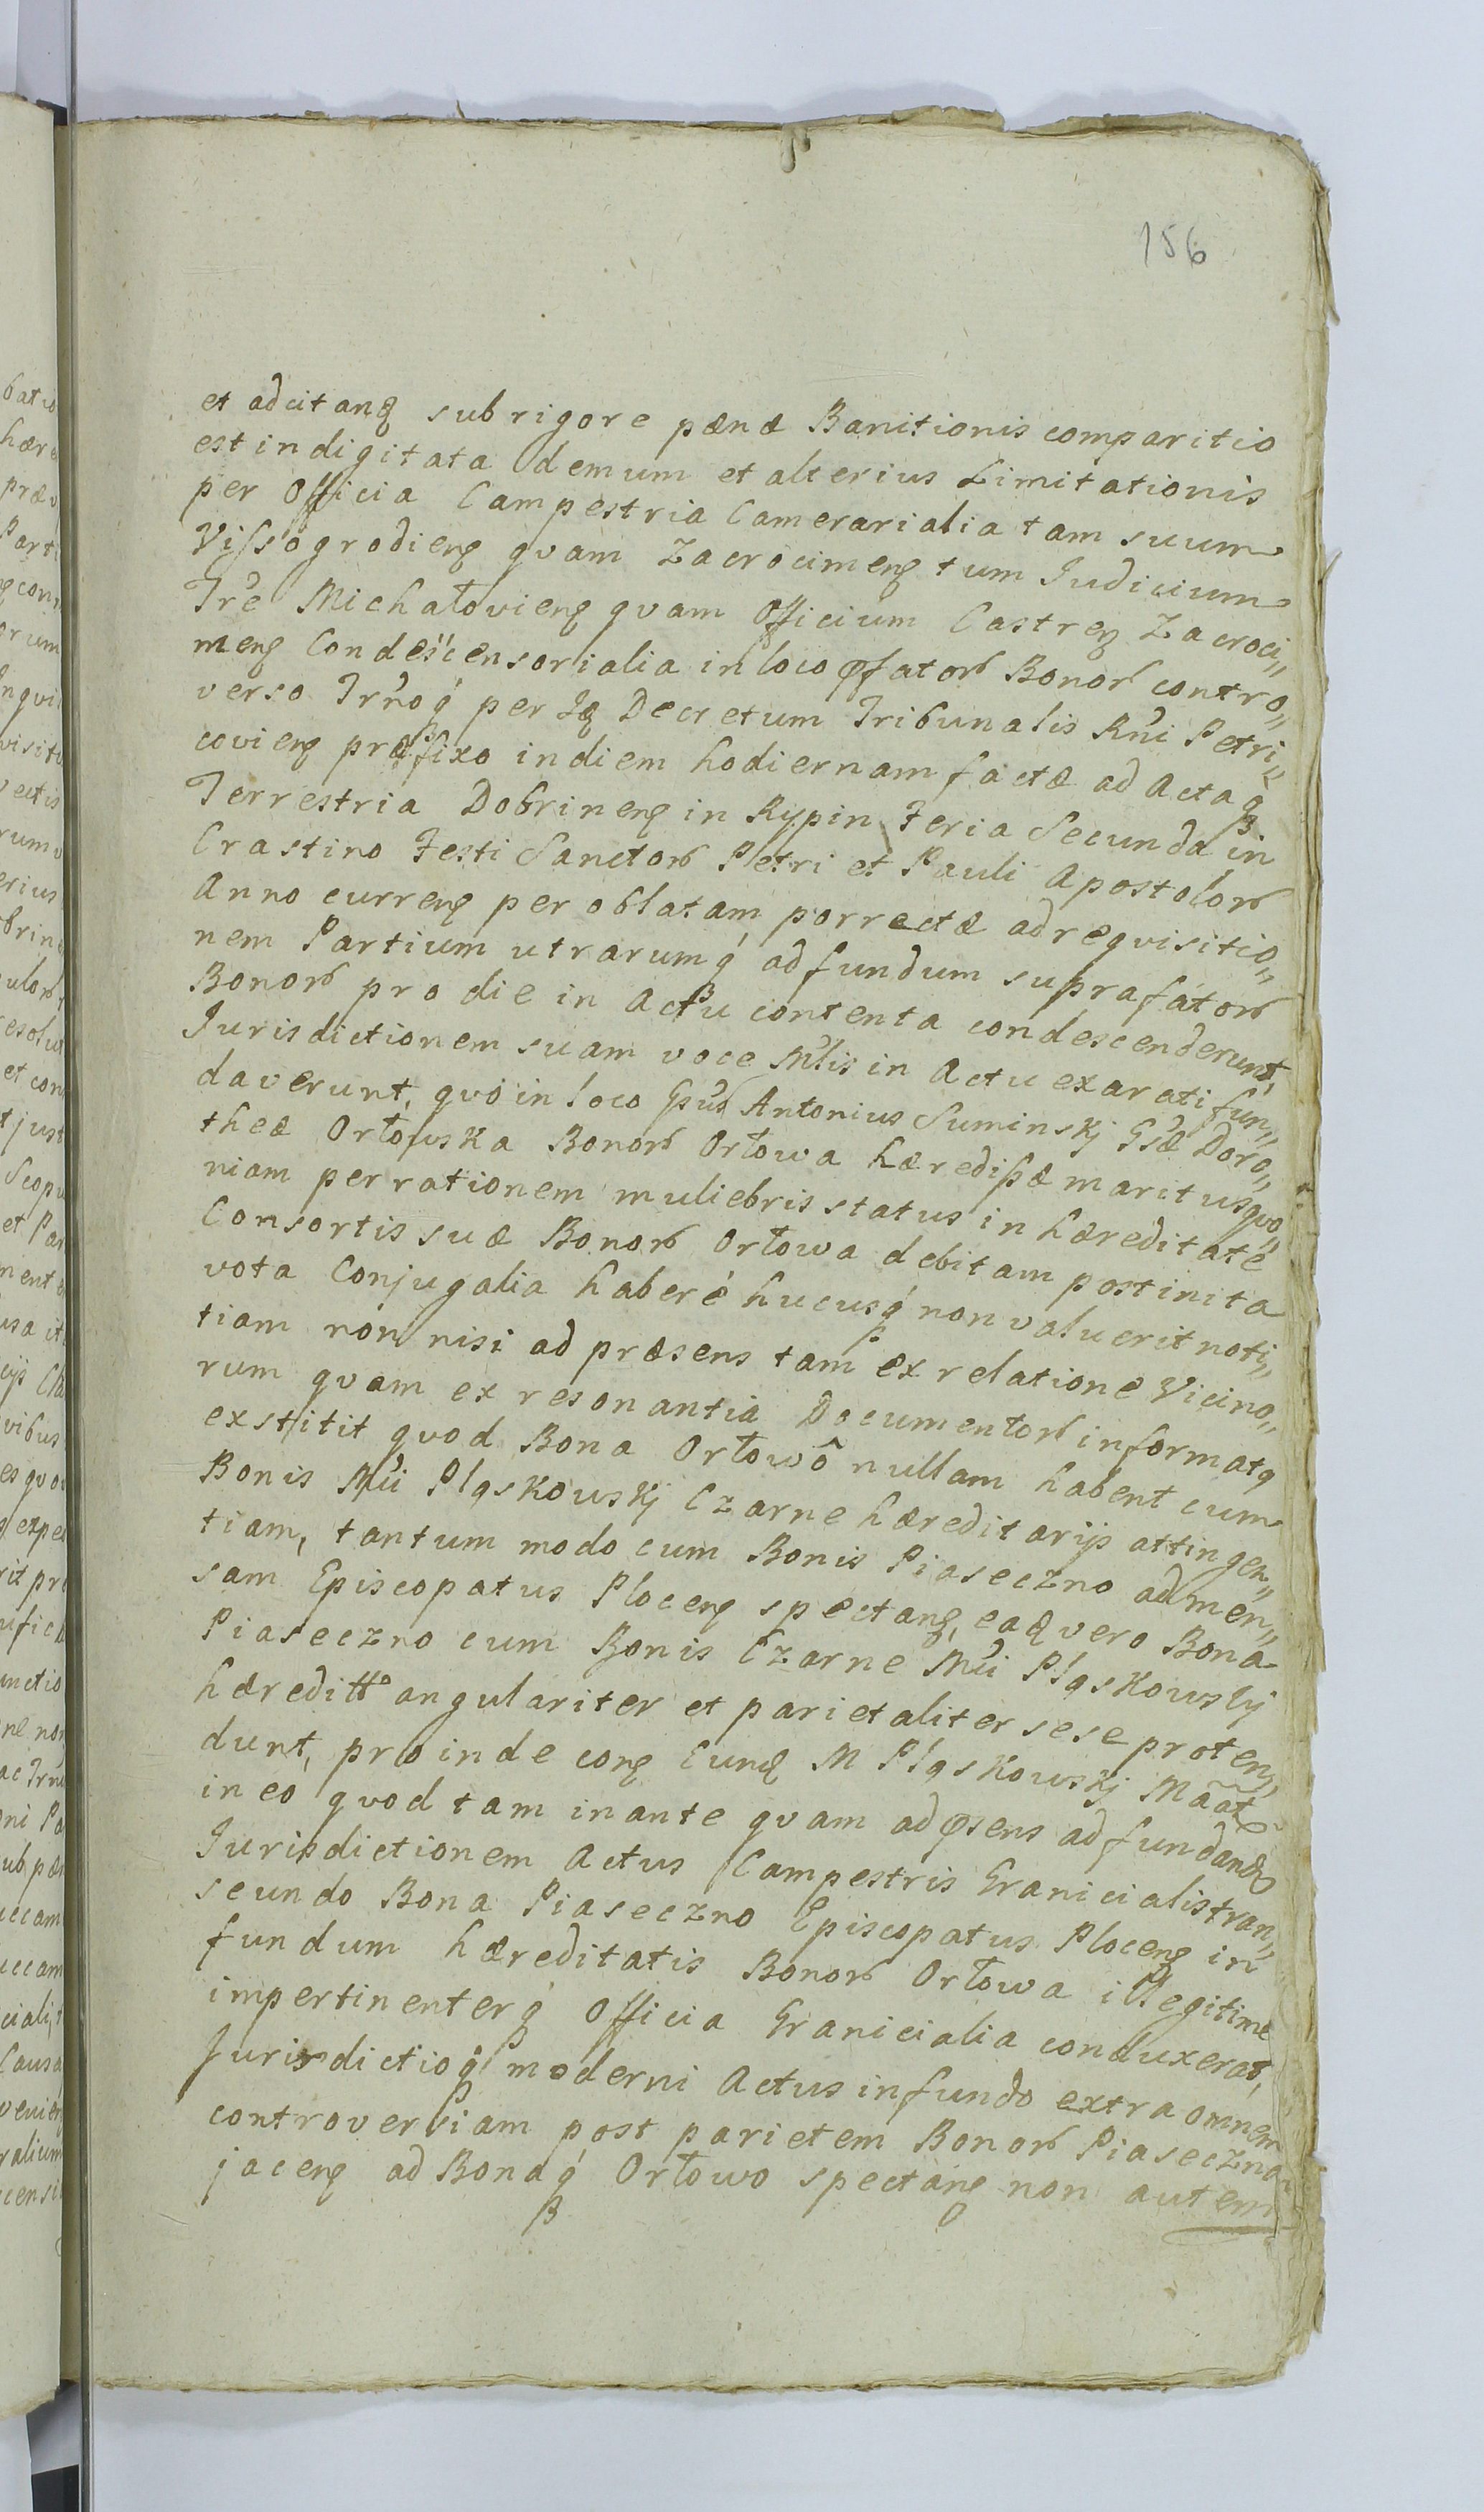 156
et adcitanę sub rigore pænæ Banitionis comparitio
est indigitata demum et alterius Limitationis
per Officia Campestria Camerarialia tam suum
Vissogrodienę qvam Zacrocimenę tum Judicium
Tr̃e Michałovienę qvam Officium Castrenę Zacroci„
menę Condescensorialia in loco pfatorb Bonorb contro„
verso Tr̃noq́ per Decretum Tribunalis Rñi Petri„
covienę præfixo in diem hodiernam factæ ad Actaq́
Terrestria Dobrinenę in Rypin Feria Secunda in
Crastino Festi Sanctorb Petri et Pauli Apostolorb
Anno currenę per oblatam porrectæ ad reqvisitio„
nem Partium utrarumq́ ad fundum suprafatorb
Bonorb pro die in Actu contenta condescenderunt,
Jurisdictionem suam voce Mñlis in Actu exarati fun„
daverunt, qvo in loco Gñus Antonius Suminskj Gsæ Doro„
theæ Orłowska Bonorb Orłowa hæredißæ maritus qvo„
niam per rationem muliebris status in hæreditate
Consortis suæ Bonorb Orłowa debitam post inita
vota Conjugalia habere hucusq́ non valuerit noti„
tiam non nisi ad præsens tam ex relatione Vicino„
rum qvam ex resonantia Documentorb informatq
exstitit qvod Bona Orłowô nullam habent cum
Bonis Mñi Pląskowskj Czarne hæreditarijs attingen„
tiam, tantum modo cum Bonis Piaseczno ad men„
sam Episcopatus Plocenę spectanę, eaę vero Bona
Piaseczno cum Bonis Czarne Mñi Pląskowskj
hæreditt° angulariter et parietaliter sese proten„
dunt, proinde conę Eunę M Pląskowskj Mãat
in eo qvod tam in ante qvam ad psens ad fundandę
Jurisdictionem Actus Campestris Granicialis tran„
seundo Bona Piaseczno Episcopatus Plocenę in
fundum hæreditatis Bonorb Orłowa illegitime
impertinenterq́ Officia Granicialia conduxerat,
Jurisdictioq́ moderni Actus in fundo extra omnem
controversiam post parietem Bonorb Piaseczno
jacenę ad Bonaq́ Orłowo spectanę non autem